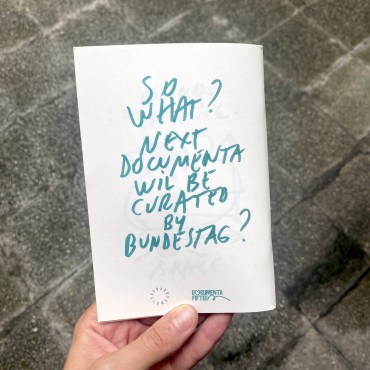 SO
WHAT?
NEXT
DOCUMENTA
WIL BE
CURATED
BY
BUNDESTAG?
DOKUMENTA
FIFTEEN